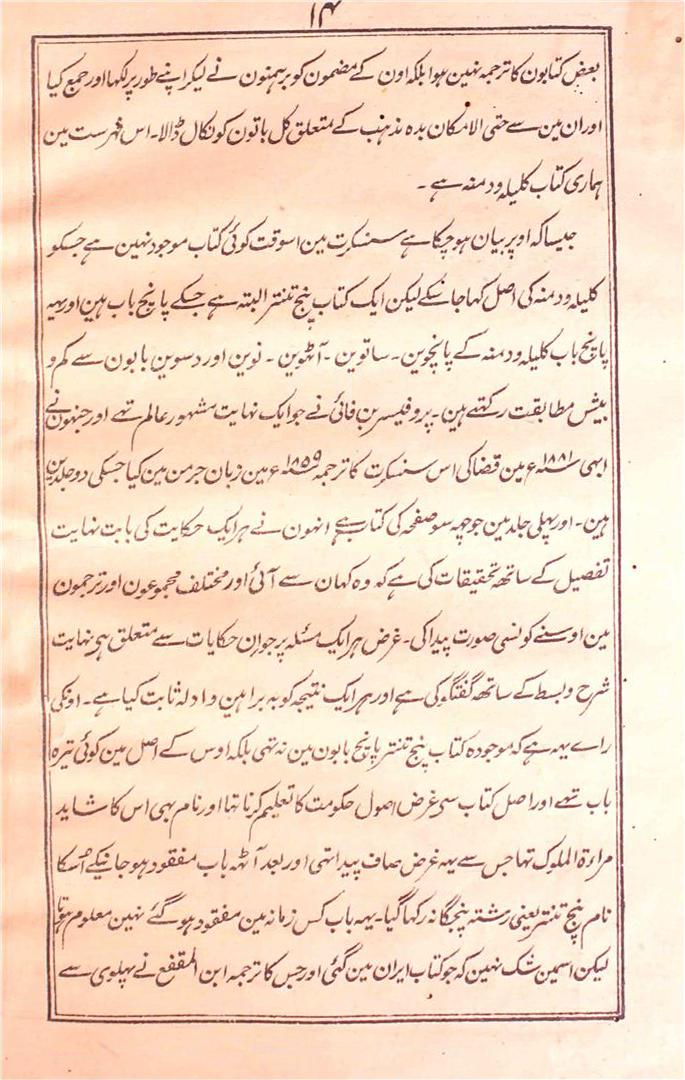 ۱۴
بعض کتابون کا ترجمہ نہین ہوا بلکہ اون کے مضمون کو برہمنون نے لیکر اپنے طور پر لکھا اور جمع کیا
اور ان مین سے حتی الامکان بدہ مذہب کے متعلق کل باتون کو نکال ڈالا۔ اس فہرست مین
ہماری کتاب کلیلہ و دمنہ ہے ۔
جیسا کہ اوپر بیان ہو چکا ہے سنسکرت مین اسوقت کوئی کتاب موجود نہین ہے جسکو
کلیلہ و دمنہ کی اصل کہا جا سکے لیکن ایک کتاب پنچ تنتر البتہ ہے جسکے پانچ باب ہین اور یہہ
پانچ باب کلیلہ و دمنہ کے پانچوین۔ ساتوین۔ آٹھوین۔ نوین اور دسوین بابون سے کم و
بیش مطابقت رکہتے ہین۔ پروفیسر بن فائی نے جو ایک نہایت مشہور عالم تہے اور جنہون نے
ابہی ۱۸۸۱ء مین قضا کی اس سنسکرت کا ترجمہ ۱۸۵۹ء مین زبان جرمن مین کیا جسکی دو جلدین
ہین۔ اور پہلی جلد مین جو چہہ سو صفحہ کی کتاب ہے انہون نے ہر ایک حکایت کی بابت نہایت
تفصیل کے ساتھ تحقیقات کی ہے کہ وہ کہان سے آئی اور مختلف مجموعون اور ترجمون
مین اوسنے کونسی صورت پیدا کی۔ غرض ہر ایک مسئلہ پر جو ان حکایات سے متعلق ہی نہایت
شرح و بسط کے ساتھ گفتگو کی ہے اور ہر ایک نتیجہ کو بہ براہین و ادلہ ثابت کیا ہے۔ اونکی
راے یہہ ہے کہ موجودہ کتاب پنچ تنتر پانچ بابون مین نہ تہی بلکہ اوس کے اصل مین کوئی تیرہ
باب تہے اور اصل کتاب سے غرض اصول حکومت کا تعلیم کرنا تہا اور نام بہی اس کا شاید
مراءۃ الملوک تہا جس سے یہہ غرض صاف پیدا تہی اور بعد آٹھہ باب مفقود ہو جانیکے اُسکا
نام پنچ تنتر یعنی رشتہ پنجگانہ رکہا گیا۔ یہہ باب کس زمانہ مین مفقود ہو گئے نہین معلوم ہوتا
لیکن اسمین شک نہین کہ جو کتاب ایران مین گئی اور جس کا ترجمہ ابن المقفع نے پہلوی سے